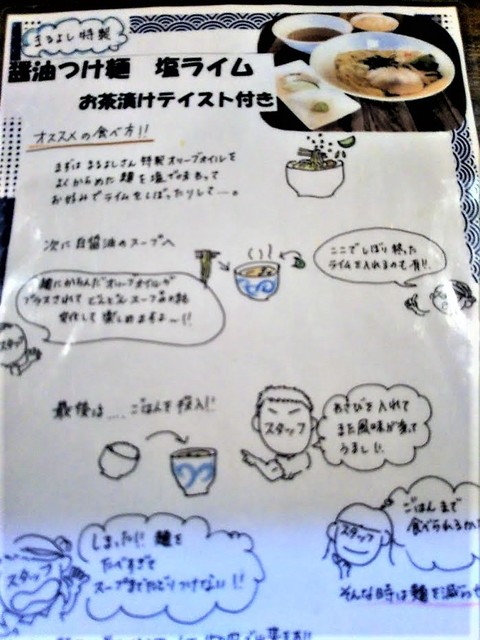 まるよし特製
醤油つけ麺 塩ライム
お茶漬けテイスト付き
オススメの食べ方!!
まずは まるよしさん 特製オリーブオイルを
よくからめた 麺を塩で味わって
お好みでライムをしぼったりして…。
次に 白醤油のスープへ
ここで しぼり終った
ライムを入れるのも有!!
麺にからんだオリーブオイルが
プラスされて どんどん スープの味
変化して 楽しめますよ〜!!
スタッフ
最後は.... ごはんを投入!!
スタッフ
わさびを入れて
また風味が変って
うまし!!
ごはんまで
食べられるか
スタッフ
しまった!! 麺を
たべすぎて
スープまでたどりつけない!!
スタッフ
そんな時は麺を減ら